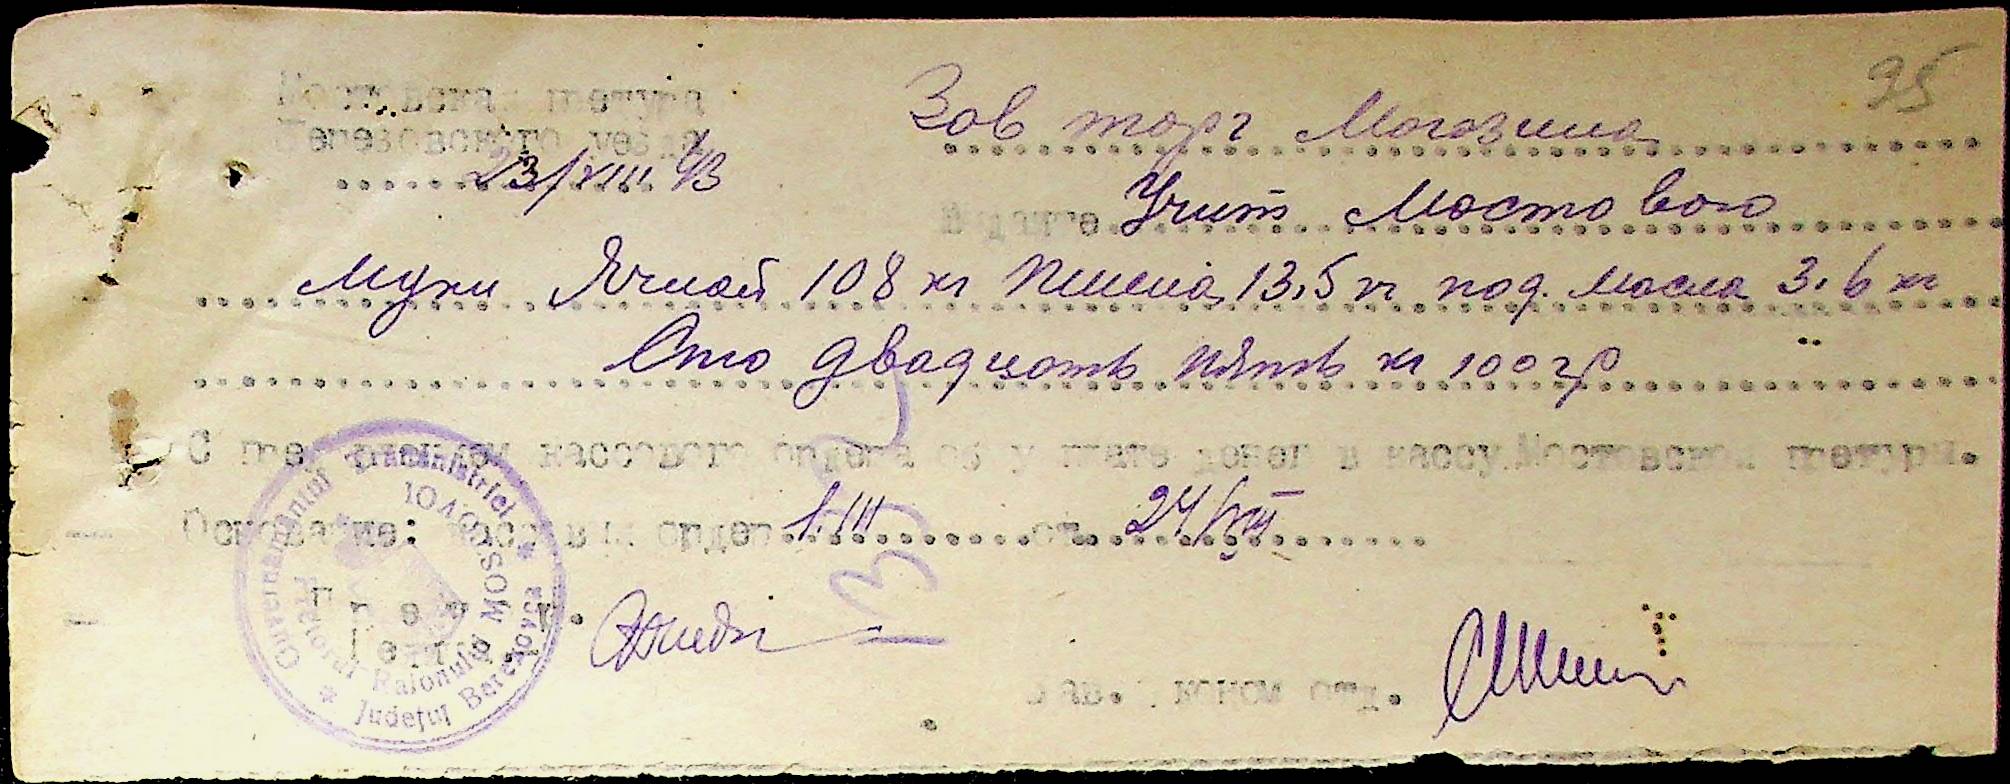 95
Мостовская претура
Березовского уезда
23/VIII 43
Зав торг Могозина
Выдайте Учит Мостовою
Муки Ячной 108 кг Пшена 13,5 кг под. масла 3,6 кг
Сто двадцать пять кг 100 гр
С кассового ордера об уплате денег в кассу Мостовской претуры.
Основание: кассовый ордер 1.III от 24/VIII
Претор.
Зав. Эконом отд.
Guvernământul Transnistriei
Pretorul Raionului MOSTOVOI
Județul Berezovca